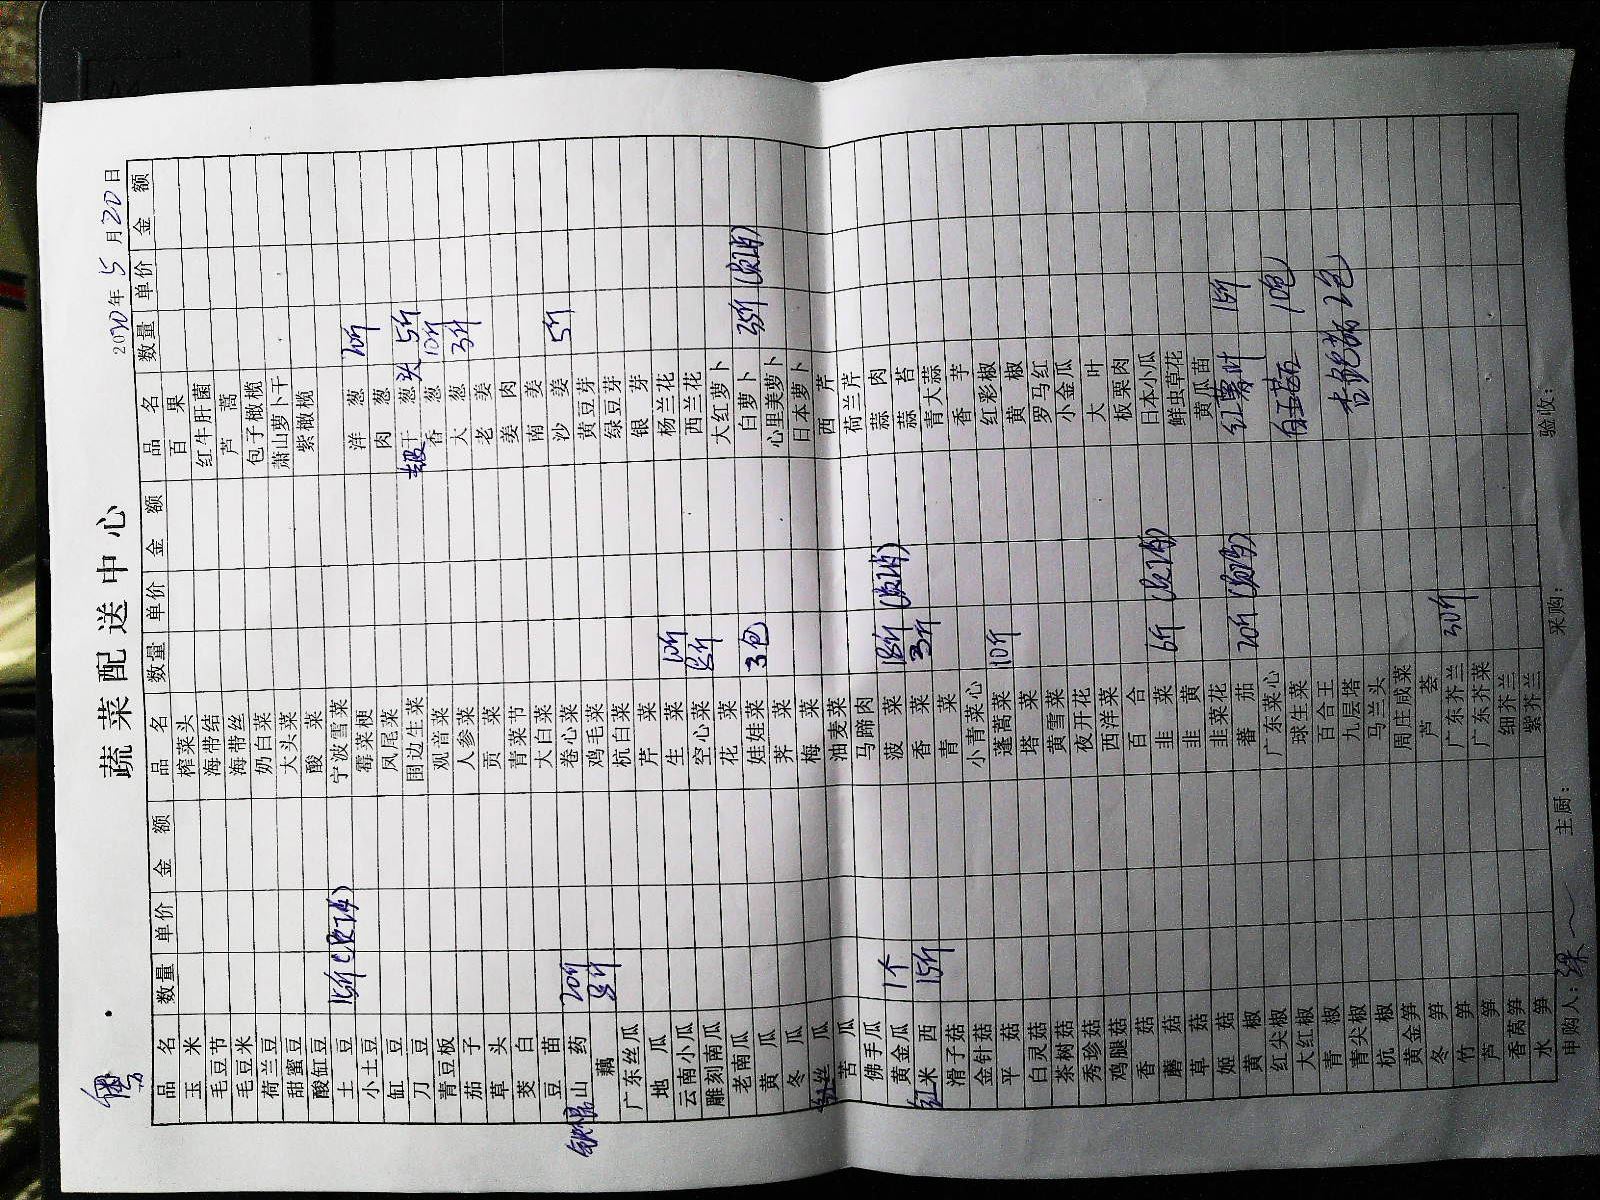 蔬菜配送中心
2020年5月20日
品名 数量 单价 金额 品名 数量 单价 金额 品名 数量 单价 金额
玉米 榨菜头 百果
毛豆节 海带结 红牛肝菌
毛豆米 海带丝 芦蒿
荷兰豆 奶白菜 包子橄榄
甜蜜豆 大头菜 萧山萝卜干
酸缸豆 酸菜 紫橄榄
土豆 15斤 宁波雪菜
小土豆 霉菜梗 洋葱 20斤
缸豆 凤尾菜 肉葱
刀豆 围边生菜 干葱头 5斤
青豆板 观音菜 香葱 10斤
茄子 人参菜 大葱 3斤
草头 贡菜 老姜
茭白 青菜节 姜肉
豆苗 大白菜 南姜
铁棍山药 20斤 卷心菜 沙姜 5斤
藕 8斤 鸡毛菜 黄豆芽
广东丝瓜 杭白菜 绿豆芽
地瓜 芹菜 银芽
云南小瓜 生菜 10斤 杨兰花
雕刻南瓜 空心菜 西兰花
老南瓜 花菜 大红萝卜
黄瓜 娃娃菜 3包 白萝卜 35斤
冬瓜 荠菜 心里美萝卜
丝瓜 梅菜 日本萝卜
苦瓜 油麦菜 西芹
佛手瓜 马蹄肉 荷兰芹
黄金瓜 1个 菠菜 18斤 蒜肉
红米西 15斤 香菜 3斤 蒜苔
滑子菇 青菜 青大蒜
金针菇 小青菜心 香芋
平菇 蓬蒿菜 10斤 红彩椒
白灵菇 塔菜 黄椒
茶树菇 黄雪菜 罗马红
秀珍菇 夜开花 小金瓜
鸡腿菇 西洋菜 大叶
香菇 百合 板栗肉
蘑菇 韭菜 6斤 日本小瓜
草菇 韭黄 鲜虫草花
姬菇 韭菜花 黄瓜苗
黄椒 蕃茄 20斤 红薯叶 15斤
红尖椒 广东菜心
大红椒 球生菜 白玉菇 10包
青椒 百合王
青尖椒 九层塔 杏鲍菇 2包
杭椒 马兰头
黄金笋 周庄咸菜
冬笋 芦荟
竹笋 广东芥兰 30斤
芦笋 广东芥菜
香莴笋 细芥兰
水笋 紫芥兰
申购人: 主厨: 采购: 验收: